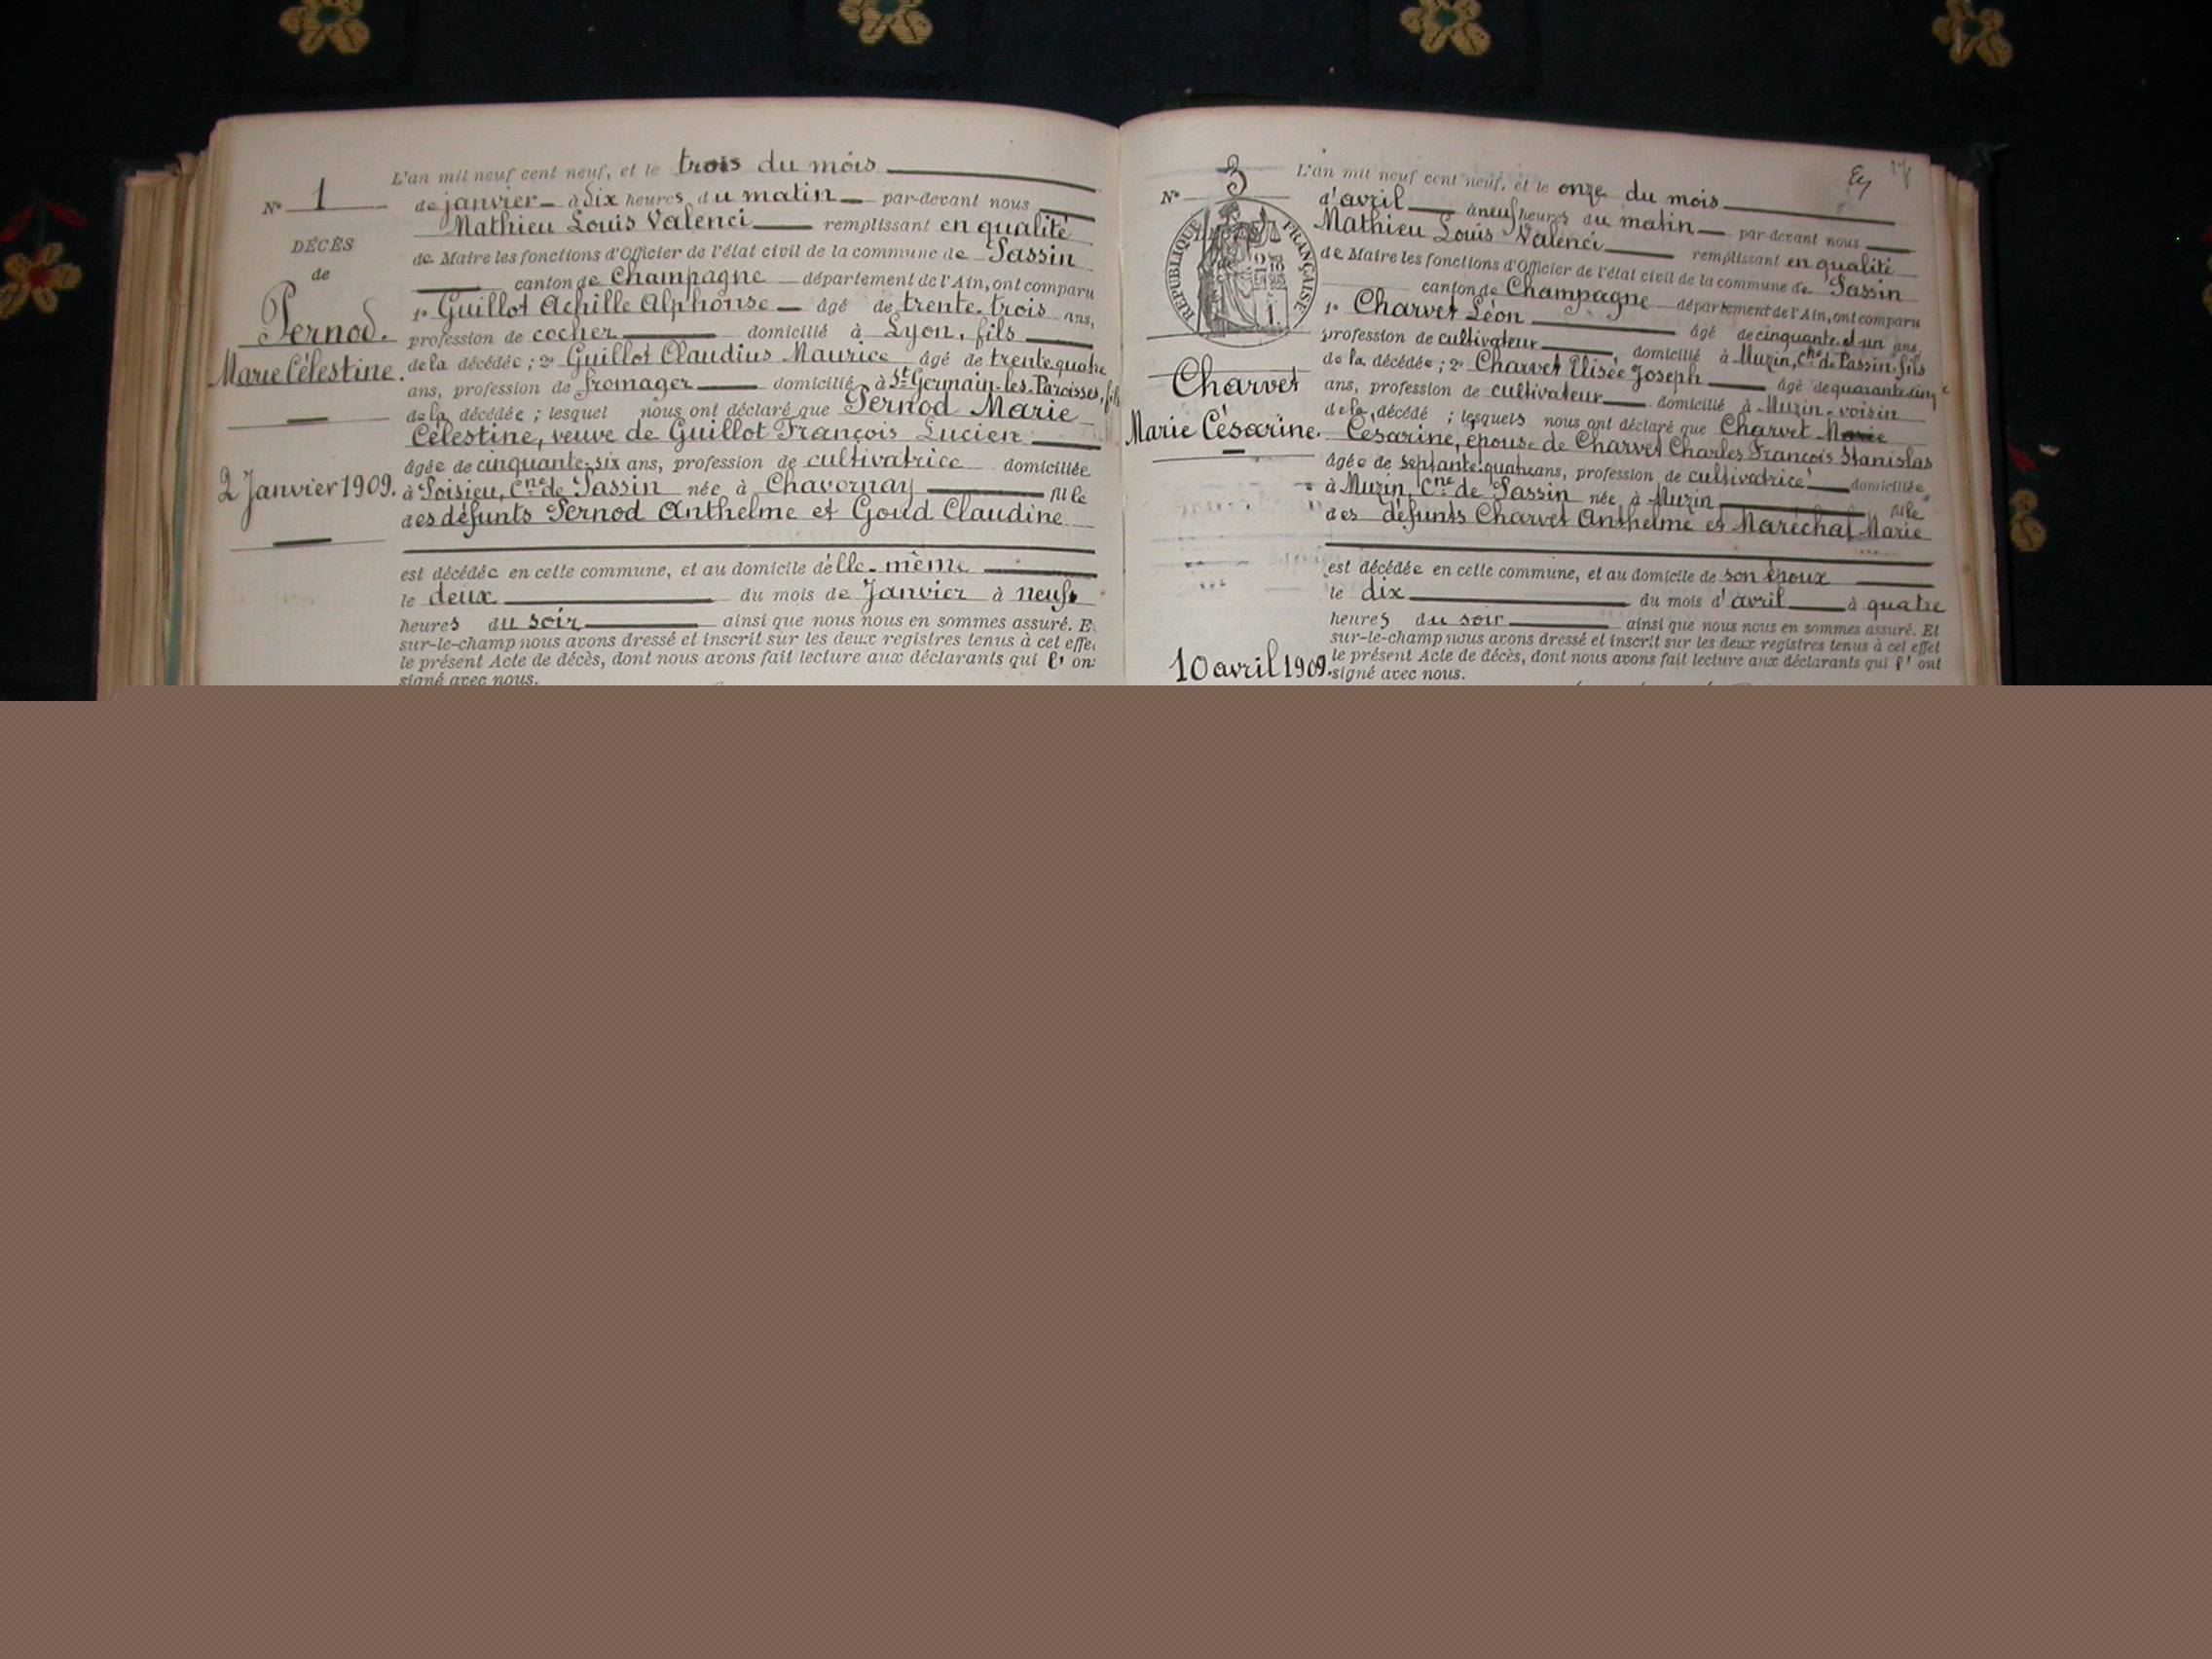 L'an mil neuf cent neuf, et le trois du mois
N° 1
de janvier à dix heures du matin par-devant nous
Mathieu Louis Valenci remplissant en qualité
DÉCÈS
de Maire les fonctions d'Officier de l'état civil de la commune de Passin
de
canton de Champagne département de l'Ain, ont comparu
1° Guillot Achille Alphonse âgé de trente-trois ans,
Pernod.
profession de cocher domicilié à Lyon, fils
Marie Célestine.
de la décédée ; 2° Guillot Claudius Maurice âgé de trente quatre
ans, profession de fromager domicilié à St Germain-les-Paroisses, fils
de la décédée ; lesquel nous ont déclaré que Pernod Marie
Célestine, veuve de Guillot François Lucien
âgée de cinquante-six ans, profession de cultivatrice domiciliée
2 Janvier 1909.
à Poisieu, Cne de Passin née à Chavornay fille
des défunts Pernod Anthelme et Goud Claudine
est décédée en cette commune, et au domicile d'elle-même
le deux du mois de Janvier à neuf
heures du soir ainsi que nous nous en sommes assuré. E
sur-le-champ nous avons dressé et inscrit sur les deux registres tenus à cet effe
le présent Acte de décès, dont nous avons fait lecture aux déclarants qui l' on
signé avec nous.
L'an mil neuf cent neuf, et le onze du mois
N° 3
d'avril à neuf heures du matin par-devant nous
Mathieu Louis Valenci remplissant en qualité
de Maire les fonctions d'Officier de l'état civil de la commune de Passin
RÉPUBLIQUE FRANÇAISE
canton de Champagne département de l'Ain, ont comparu
1° Charvet Léon âgé de cinquante et un ans,
profession de cultivateur, domicilié à Muzin, Cne de Passin, fils
de la décédée ; 2° Charvet Elisée Joseph âgé de quarante cinq
Charvet
ans, profession de cultivateur domicilié à Muzin, voisin
de la décédé ; lesquels nous ont déclaré que Charvet Marie
Marie Césarine.
Césarine, épouse de Charvet Charles François Stanislas
âgée de septante-quatre ans, profession de cultivatrice domiciliée
à Muzin, Cne de Passin née à Muzin fille
des défunts Charvet Anthelme et Maréchal Marie
est décédée en cette commune, et au domicile de son époux
le dix du mois d'avril à quatre
heures du soir ainsi que nous nous en sommes assuré. Et
sur-le-champ nous avons dressé et inscrit sur les deux registres tenus à cet effet
le présent Acte de décès, dont nous avons fait lecture aux déclarants qui l' ont
10 avril 1909.
signé avec nous.